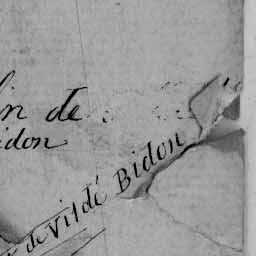 in de
idon
de Vildé Bidon